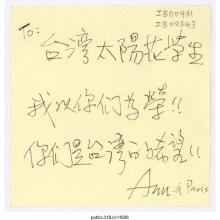 IB00431
IB00343
To:
台湾太陽花学生
我以你们为榮!!
你们是台湾的希望!!
Ann à Paris
public.318.io/11606